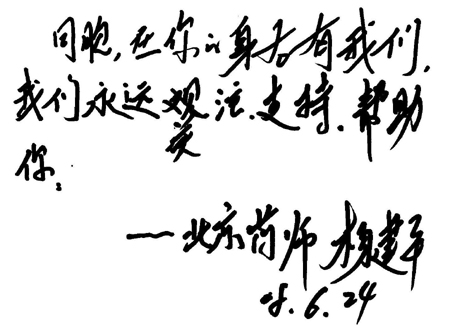 同胞,在你的身后有我们,
我们永远观注.支持.帮助
关
你。
——北京药师 杨建平
08.6.24